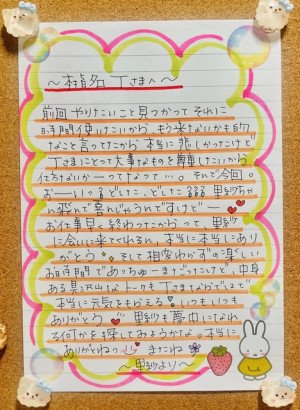 ～椎名Tさまへ～
前回 やりたいこと見つかって それに
時間使いたいから、もう来ないかも的
なこと言ってたから 本当に悲しかったけど
Tさまにとって大事なものを したいから
仕方ないかーってなって…。そして今回。
おーーいっ どした、どした
飛んで喜んじゃうんですけどー
お仕事早く終わったからって、里紗
に会いに来てくれるし、本当に本当にあり
がとう。そして相変わらずの楽しい
お時間であっちゅーまだったけど、中身
ある 沢山なトークも Tさまならでして
本当に元気をもらえる いつもいつも
ありがとう 里紗も夢中になれ
る何かを探してみようかな。本当に
ありがとねっ またね
～里紗より～